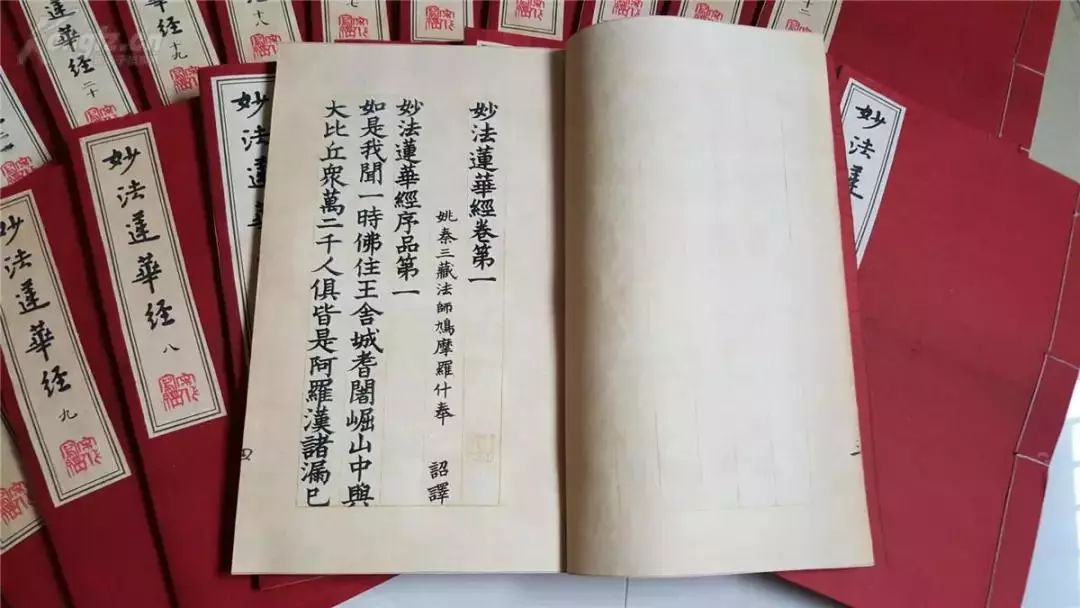 妙法蓮華經卷第一
姚秦三藏法師鳩摩羅什奉 詔譯
妙法蓮華經序品第一
如是我聞一時佛住王舍城耆闍崛山中與
大比丘衆萬二千人俱皆是阿羅漢諸漏已
四
妙法蓮
妙法蓮
妙法蓮華经 八
妙法蓮華经 九
華经 二十
经 十九
十八
七